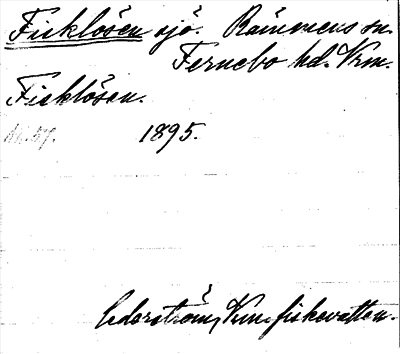 Fisklösen sjö. Rämmens sn.
Fernebo hd. Vrm.
Fisklösen.
1895.
Cederström, Vrm. fiskevatten.